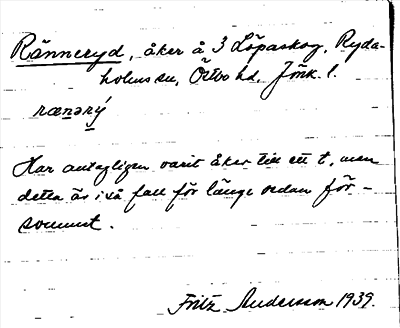 Ränneryd, åker å 3 Löpaskog, Ryda-
holms sn, Östbo hd, Jönk. l.
rænərý
Har antagligen varit åker till ett t, men
detta är i så fall för länge sedan för-
svunnet.
Fritz Andersson 1939.